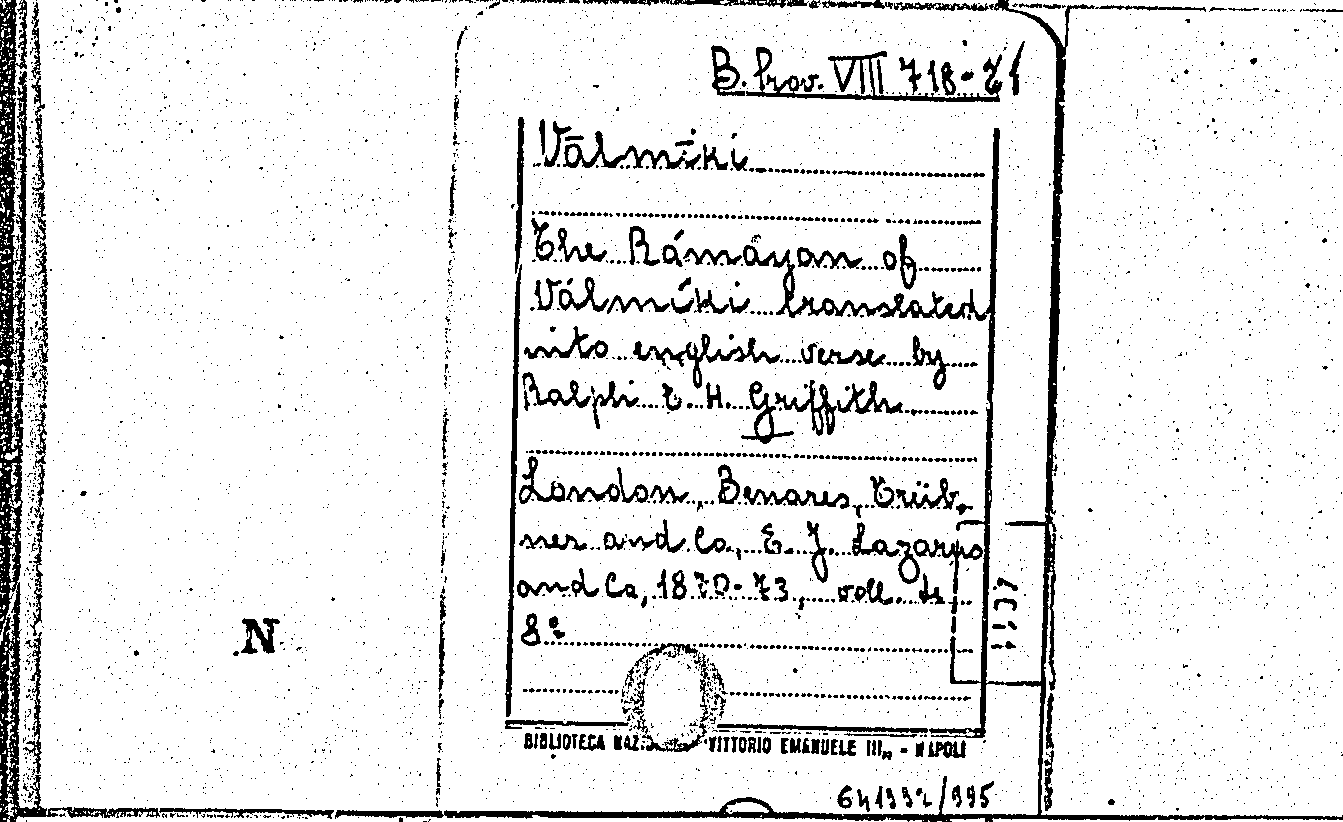 B. Prov. VIII 718-21
Vālmīki
The Rámáyan of
Válmíki translated
into english verse by
Ralph T. H. Griffith
London, Benares, Trüb-
ner and Co, E. J. Lazarus
and Co, 1870-73, voll. 4
8º
N
BIBLIOTECA VITTORIO EMANUELE III„ - NAPOLI
/995